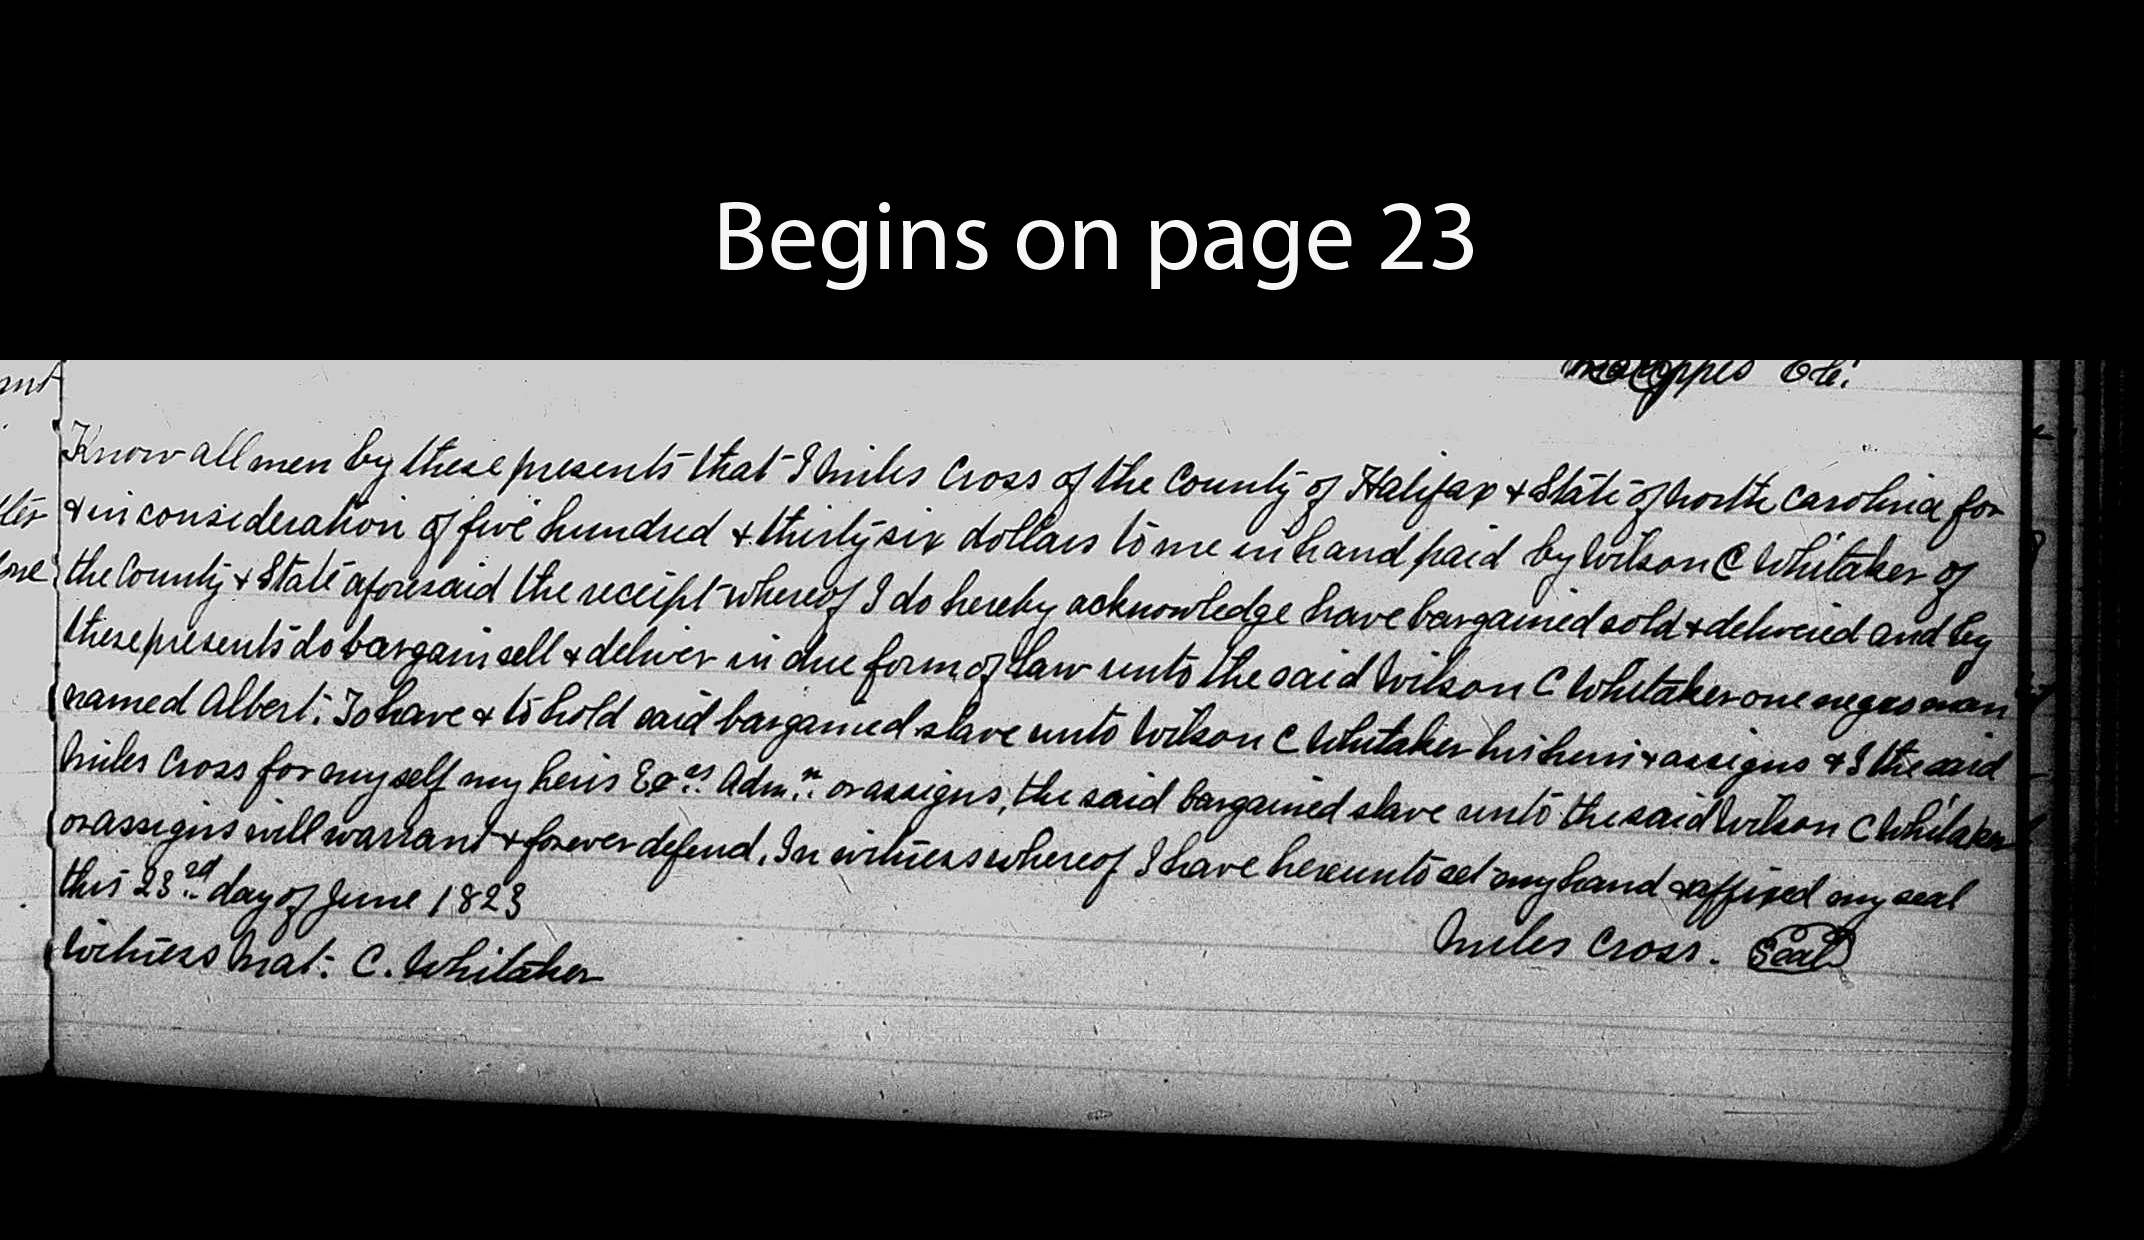 Begins on page 23
Know all men by these presents that I Miles Cross of the County of Halifax & State of North Carolina for
& in consideration of five hundred & thirty six dollars to me in hand paid by Wilson C Whitaker of
the County & State aforesaid the receipt whereof I do hereby acknowledge have bargained sold & delivered and by
these presents do bargain sell & deliver in due form of Law unto the said Wilson C Whitaker one negro man
named Albert. To have & to hold said bargained slave unto Wilson C Whitaker his heirs & assigns & I the said
Miles Cross for my self my heirs Exrs. Admrs. or assigns, the said bargained slave unto the said Wilson C Whitaker
or assigns will warrant & forever defend. In witness whereof I have hereunto set my hand & affixed my seal
this 23rd day of June 1823
Miles Cross. Seal
Witness Mat: C. Whitaker